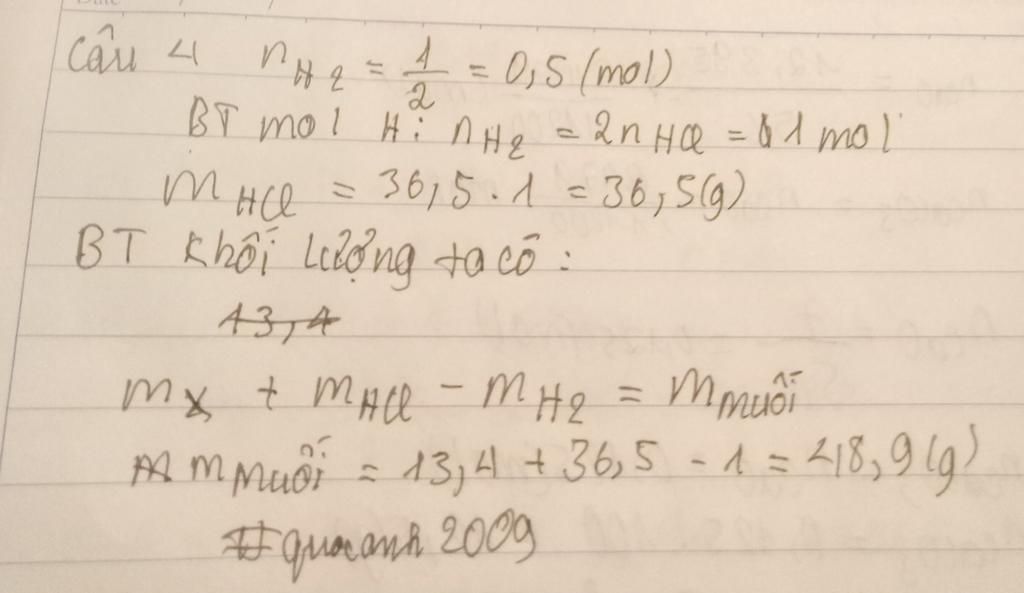 Câu 4 n H2 = 1/2 = 0,5 (mol)
BT mol H: n H2 = 2n HCl = 1 mol
m HCl = 36,5 . 1 = 36,5(g)
BT khối lượng ta có :
13,4
m X + m HCl - m H2 = m muối
m muối = 13,4 + 36,5 - 1 = 48,9(g)
#quocanh2009